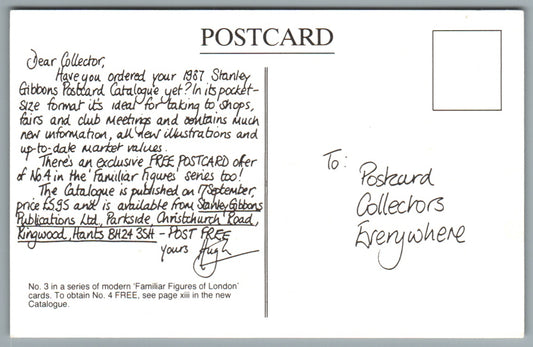 POSTCARD
Dear Collector,
Have you ordered your 1987 Stanley
Gibbons Postcard Catalogue yet? In its pocket-
size format it's ideal for taking to shops,
fairs and club meetings and contains much
new information, all new illustrations and
up-to-date market values.
There's an exclusive FREE POSTCARD offer
of No.4 in the 'Familiar Figures' series too!
The Catalogue is published on 17 September,
price £5.95 and is available from Stanley Gibbons
Publications Ltd, Parkside, Christchurch Road,
Ringwood, Hants BH24 3SH - POST FREE
Yours Hugh
No. 3 in a series of modern 'Familiar Figures of London'
cards. To obtain No. 4 FREE, see page xiii in the new
Catalogue.
To:
Postcard
Collectors
Everywhere